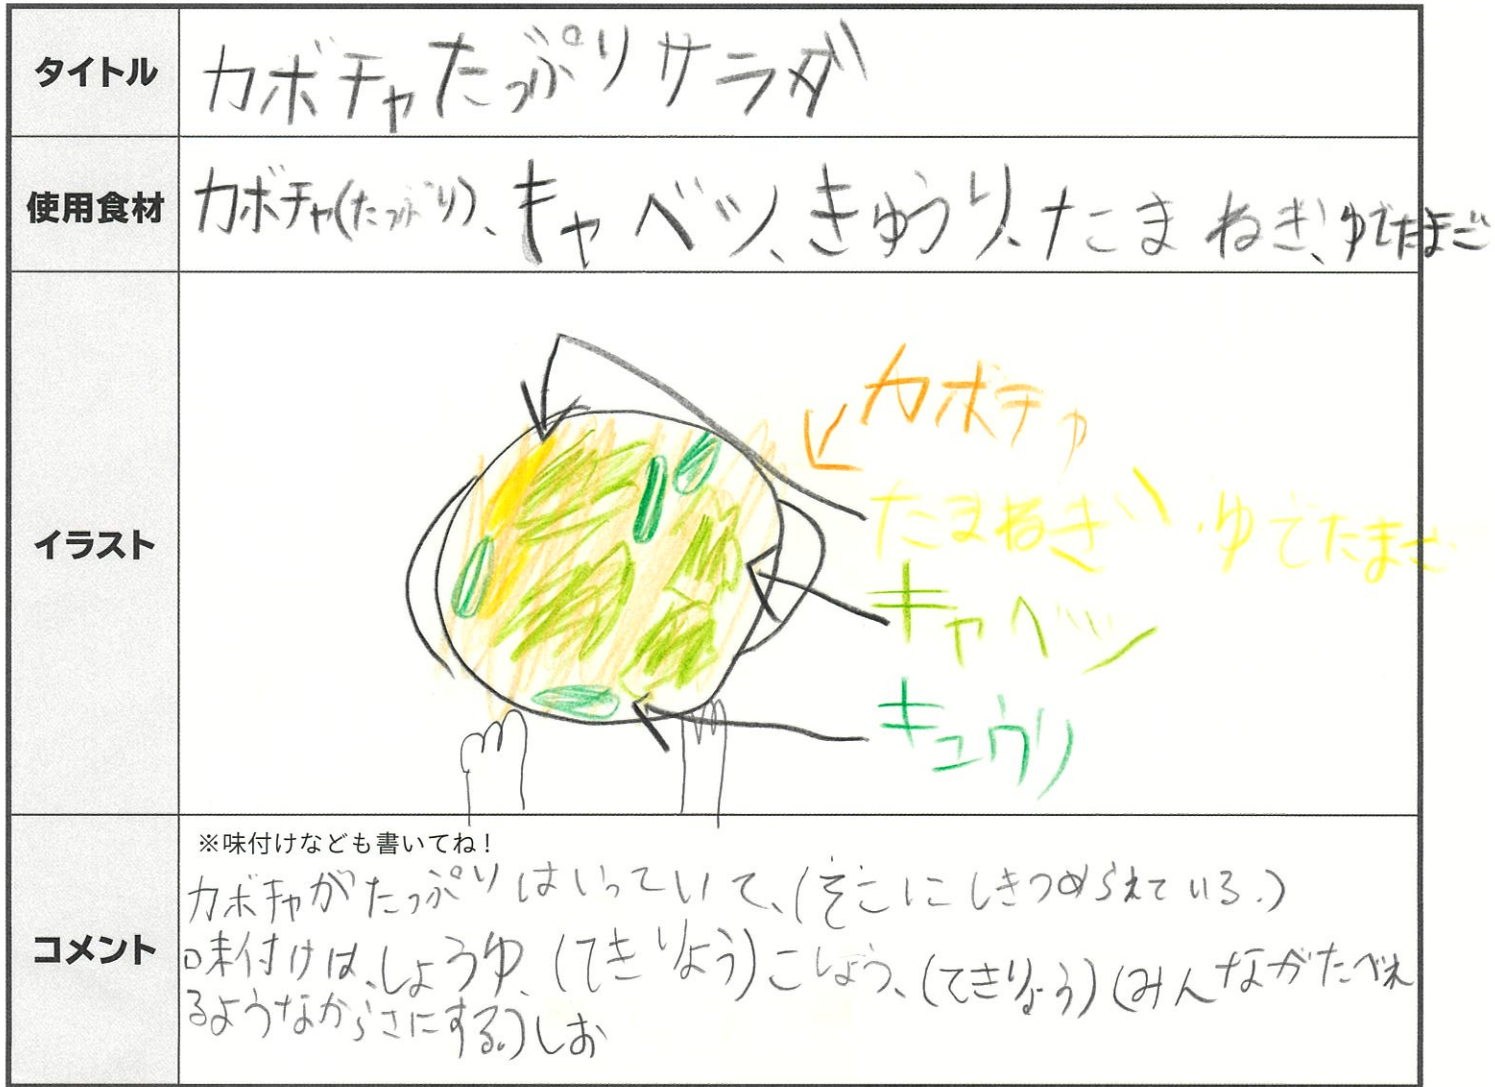 タイトル
カボチャたっぷりサラダ
使用食材
カボチャ(たっぷり)、キャベツ、きゅうり、たまねぎ、ゆでたまご
イラスト
カボチャ
たまねぎ、ゆでたまご
キャベツ
キュウリ
コメント
※味付けなども書いてね!
カボチャがたっぷりはいっていて、(そこにしきつめられている。)
味付けは、しょうゆ、(てきりょう)こしょう、(てきりょう)(みんながたべれ
るようなからさにする。)しお